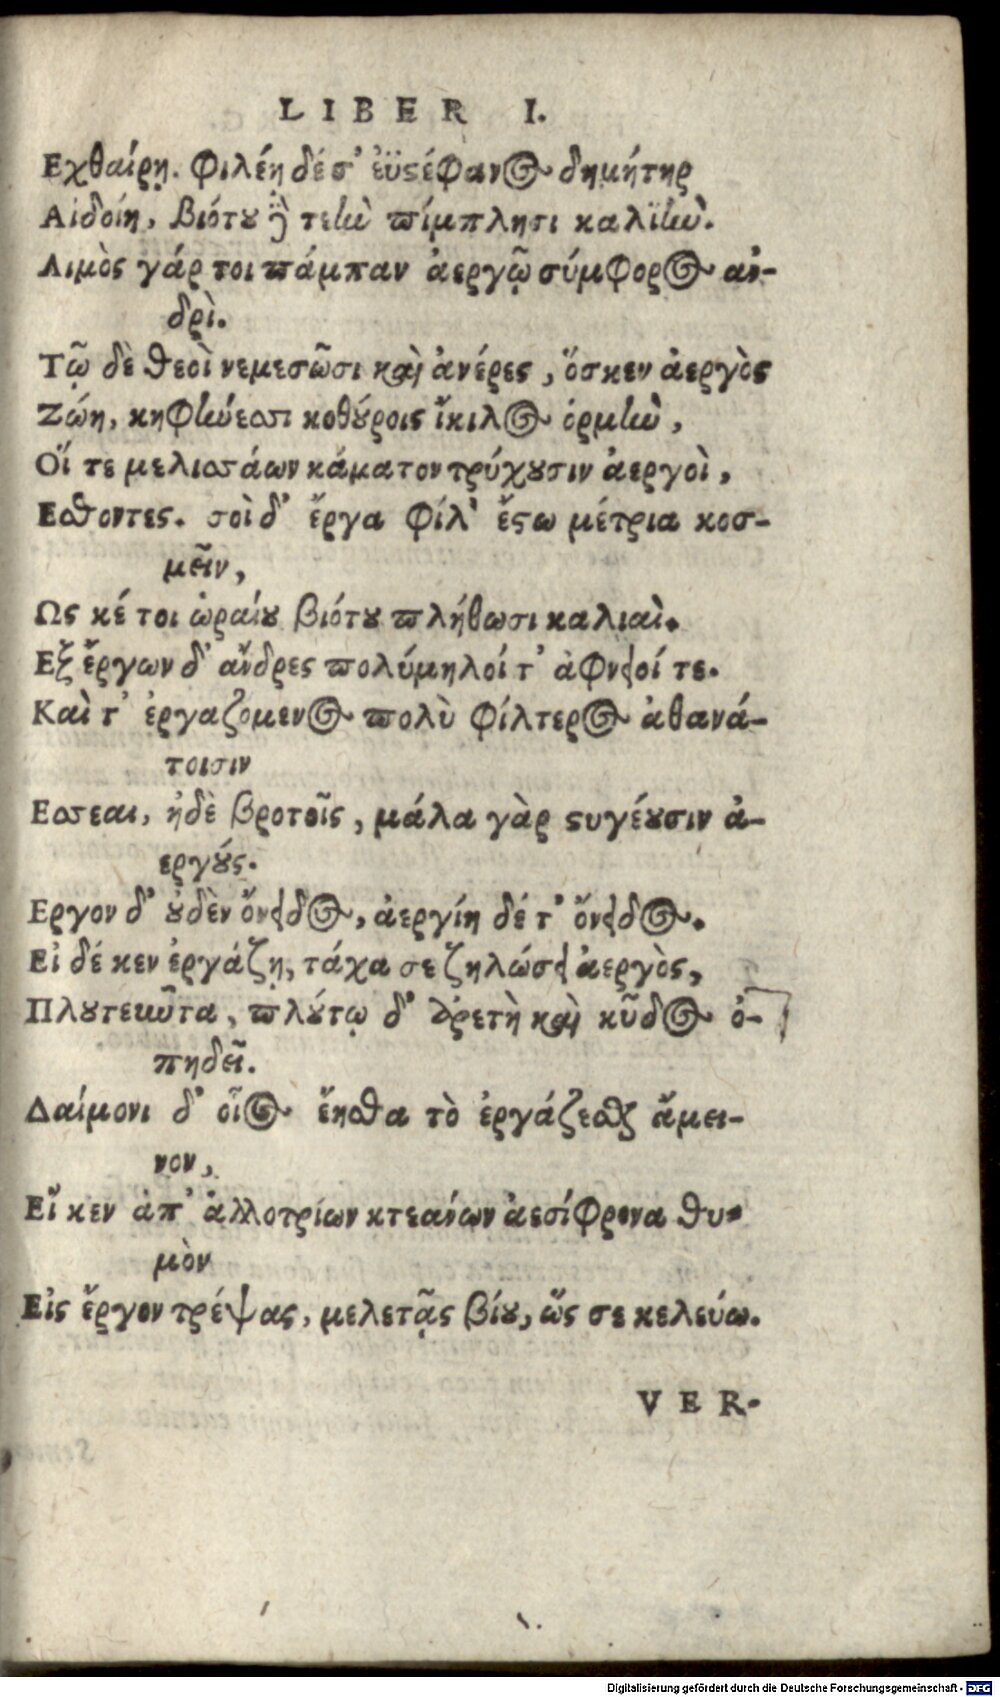 LIBER I.
Εχθαίρῃ. Φιλέῃ δέ σ' ἐϋςέφανος δημήτηρ
Αἰδοίη, βιότου δὲ τεὴν πίμπλησι καλϊὴν.
Λιμὸς γάρ τοι πάμπαν ἀεργῷ σύμφορος αν-
δρὶ.
Τῷ δὲ θεοὶ νεμεσῶσι καὶ ἀνέρες, ὅσκεν ἀεργὸς
Ζώη, κηφήνεσσι κοθούροις ἴκιλος ὁρμὴν,
Οἵ τε μελισσάων κάματον τρύχουσιν ἀεργοὶ,
Εσθοντες. σοὶ δ' ἔργα φίλ' ἔςω μέτρια κοσ-
μεῖν,
Ως κέ τοι ὡραίου βιότου πλήθωσι καλιαὶ.
Εξ ἔργων δ' ἄνδρες πολύμηλοί τ' ἀφνειοί τε.
Καὶ τ' ἐργαζομενος πολὺ φίλτερος ἀθανά-
τοισιν
Εσσεαι, ἠδὲ βροτοῖς, μάλα γὰρ ςυγέουσιν ἀ-
εργούς.
Εργον δ' οὐδὲν ὄνειδος, ἀεργίη δέ τ' ὄνειδος.
Εἰ δέ κεν ἐργάζῃ, τάχα σε ζηλώσει ἀεργὸς,
Πλουτεῦντα, πλούτῳ δ' ἀρετὴ καὶ κῦδος ὀ-
πηδεῖ.
Δαίμονι δ' οἷος ἔησθα τὸ ἐργάζεσθαι ἄμει-
νον,
Εἴ κεν ἀπ' ἀλλοτρίων κτεάνων ἀεσίφρονα θυ-
μὸν
Εἰς ἔργον τρέψας, μελετᾷς βίου, ὥς σε κελεύω.
VER-
Digitalisierung gefördert durch die Deutsche Forschungsgemeinschaft - DFG